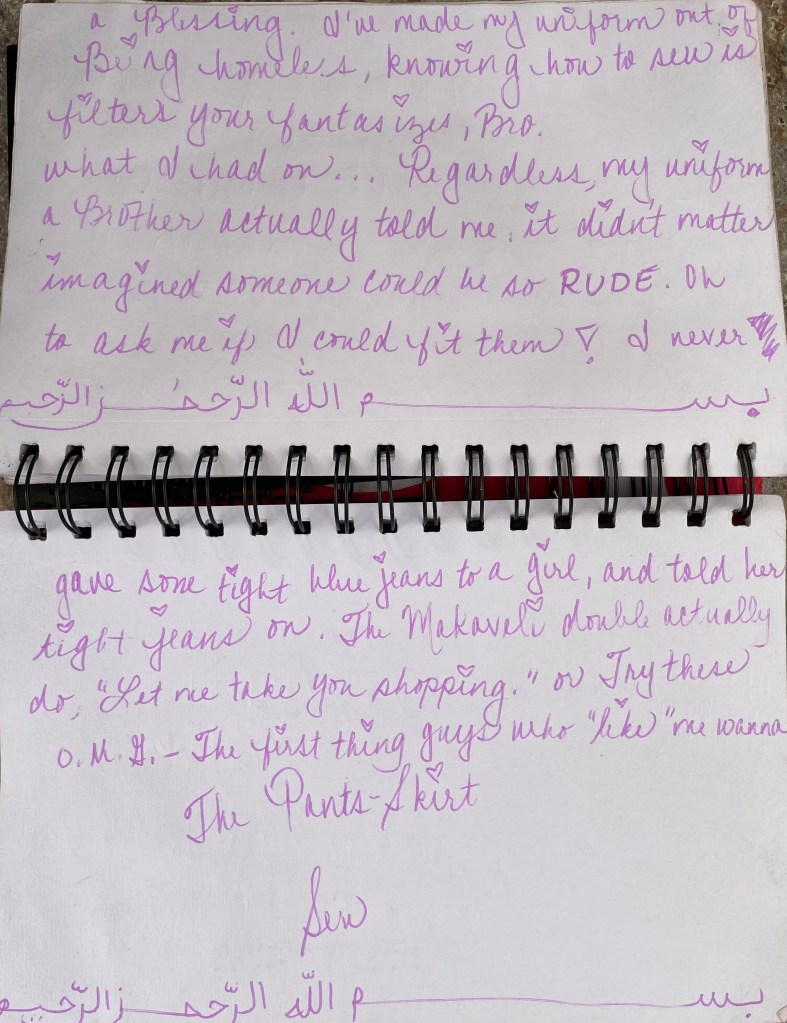 بســـم اللّه الرّحمـــن الرّحيم
Sew
The Pants-Skirt
O.M.G. - The first thing guys who "like" me wanna
do, "Let me take you shopping." or Try these
tight jeans on. The Makavali double actually
gave some tight blue jeans to a girl, and told her
بســـم اللّه الرّحمـــن الرّحيم
to ask me if I could fit them! I never
imagined someone could be so RUDE. Oh
a Brother actually told me, it didn't matter
what I had on... Regardless, my uniform
filters your fantasizes, Bro.
Being homeless, knowing how to sew is
a Blessing. I've made my uniform out of